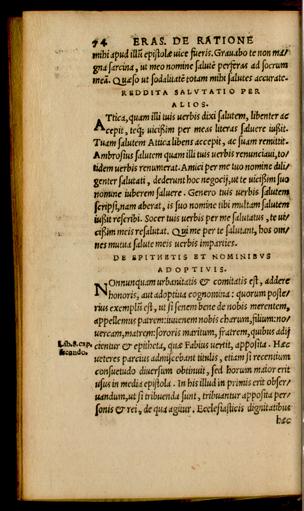 74 ERAS. DE RATIONE
mihi apud illū epistolæ uice fueris. Grauabo te non ma/
gna sarcina, ut meo nomine salutē perferas ad socrum
meā. Quæso ut sodalitatē totam mihi salutes accurate.
REDDITA SALVTATIO PER
ALIOS.
Attica, quam illi tuis uerbis dixi salutem, libenter ac
cepit, teq; uicißim per meas literas saluere iußit.
Tuam salutem Attica libens accepit, ac suam remittit.
Ambrosius salutem quam illi tuis uerbis renunciaui, to/
tidem uerbis renumerat. Amici per me tuo nomine dili/
genter salutati, dederunt hoc negocij, ut te uicißim suo
nomine iuberem saluere. Genero tuis uerbis salutem
scripsi, nam aberat, is suo nomine tibi multam salutem
iußit rescribi. Socer tuis uerbis per me salutatus, te ui/
cißim meis resalutat. Qui me per te salutant, hos om/
nes mutua salute meis uerbis imparties.
DE EPITHETIS ET NOMINIBVS
ADOPTIVIS.
Nonnunquam urbanitatis & comitatis est, addere
honoris, aut adoptiua cognomina: quorum poste/
rius exemplū est, ut si senem bene de nobis merentem,
appellemus patrem: iuuenem nobis charum, filium: no/
uercam, matrem: sororis maritum, fratrem, quibus adij
cientur & epitheta, quæ Fabius uertit, apposita. Hæc
Lib. 8. cap.
secundo.
ueteres parcius admiscebant titulis, etiam si recentium
consuetudo diuersum obtinuit, sed horum maior erit
usus in media epistola. In his illud in primis erit obser/
uandum, ut si tribuenda sunt, tribuantur apposita per/
sonis & rei, de qua agitur. Ecclesiasticis dignitatibus
hæc